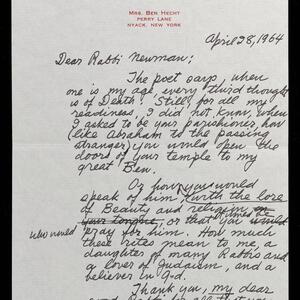 MRS. BEN HECHT
PERRY LANE
NYACK, NEW YORK
April 28, 1964
Dear Rabbi Newman;
The poet says, when
one is my age, every third thought
is of Death. Still, for all my
readiness, I did not know, when
I asked to be your parishioner how
(like Abraham to the passing
stranger) you would open the
doors of your temple to my
great Ben.
Or how you would
speak of him with the lore
of Beauty and religion
or that you would
who would pray for him. How much
these rites mean to me, a
daughter of many Rabbis and
a lover of Judaism, and a
believer in G-d.
Thank you, my dear
good Rabbi for all that